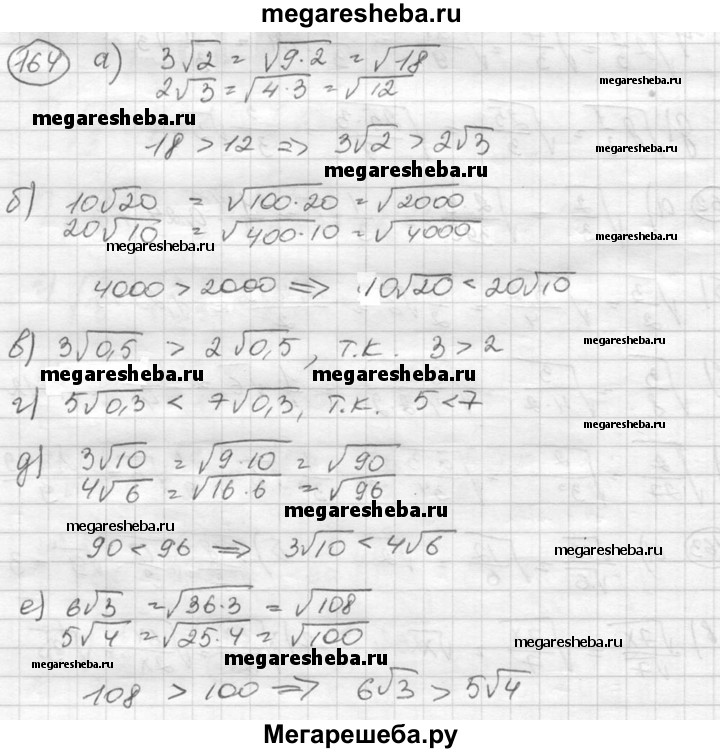 megaresheba.ru
164 а) 3√2 = √9·2 = √18
2√3 = √4·3 = √12
megaresheba.ru
megaresheba.ru
18 > 12 => 3√2 > 2√3
megaresheba.ru
б) 10√20 = √100·20 = √2000
20√10 = √400·10 = √4000
megaresheba.ru
megaresheba.ru
4000 > 2000 => 10√20 < 20√10
в) 3√0,5 > 2√0,5, т.к. 3 > 2
megaresheba.ru
megaresheba.ru megaresheba.ru
г) 5√0,3 < 7√0,3, т.к. 5<7
megaresheba.ru
д) 3√10 = √9·10 = √90
4√6 = √16·6 = √96
megaresheba.ru
megaresheba.ru
90 < 96 => 3√10 < 4√6
megaresheba.ru
е) 6√3 = √36·3 = √108
5√4 = √25·4 = √100
megaresheba.ru
megaresheba.ru megaresheba.ru
108 > 100 => 6√3 > 5√4
Мегарешеба.ру